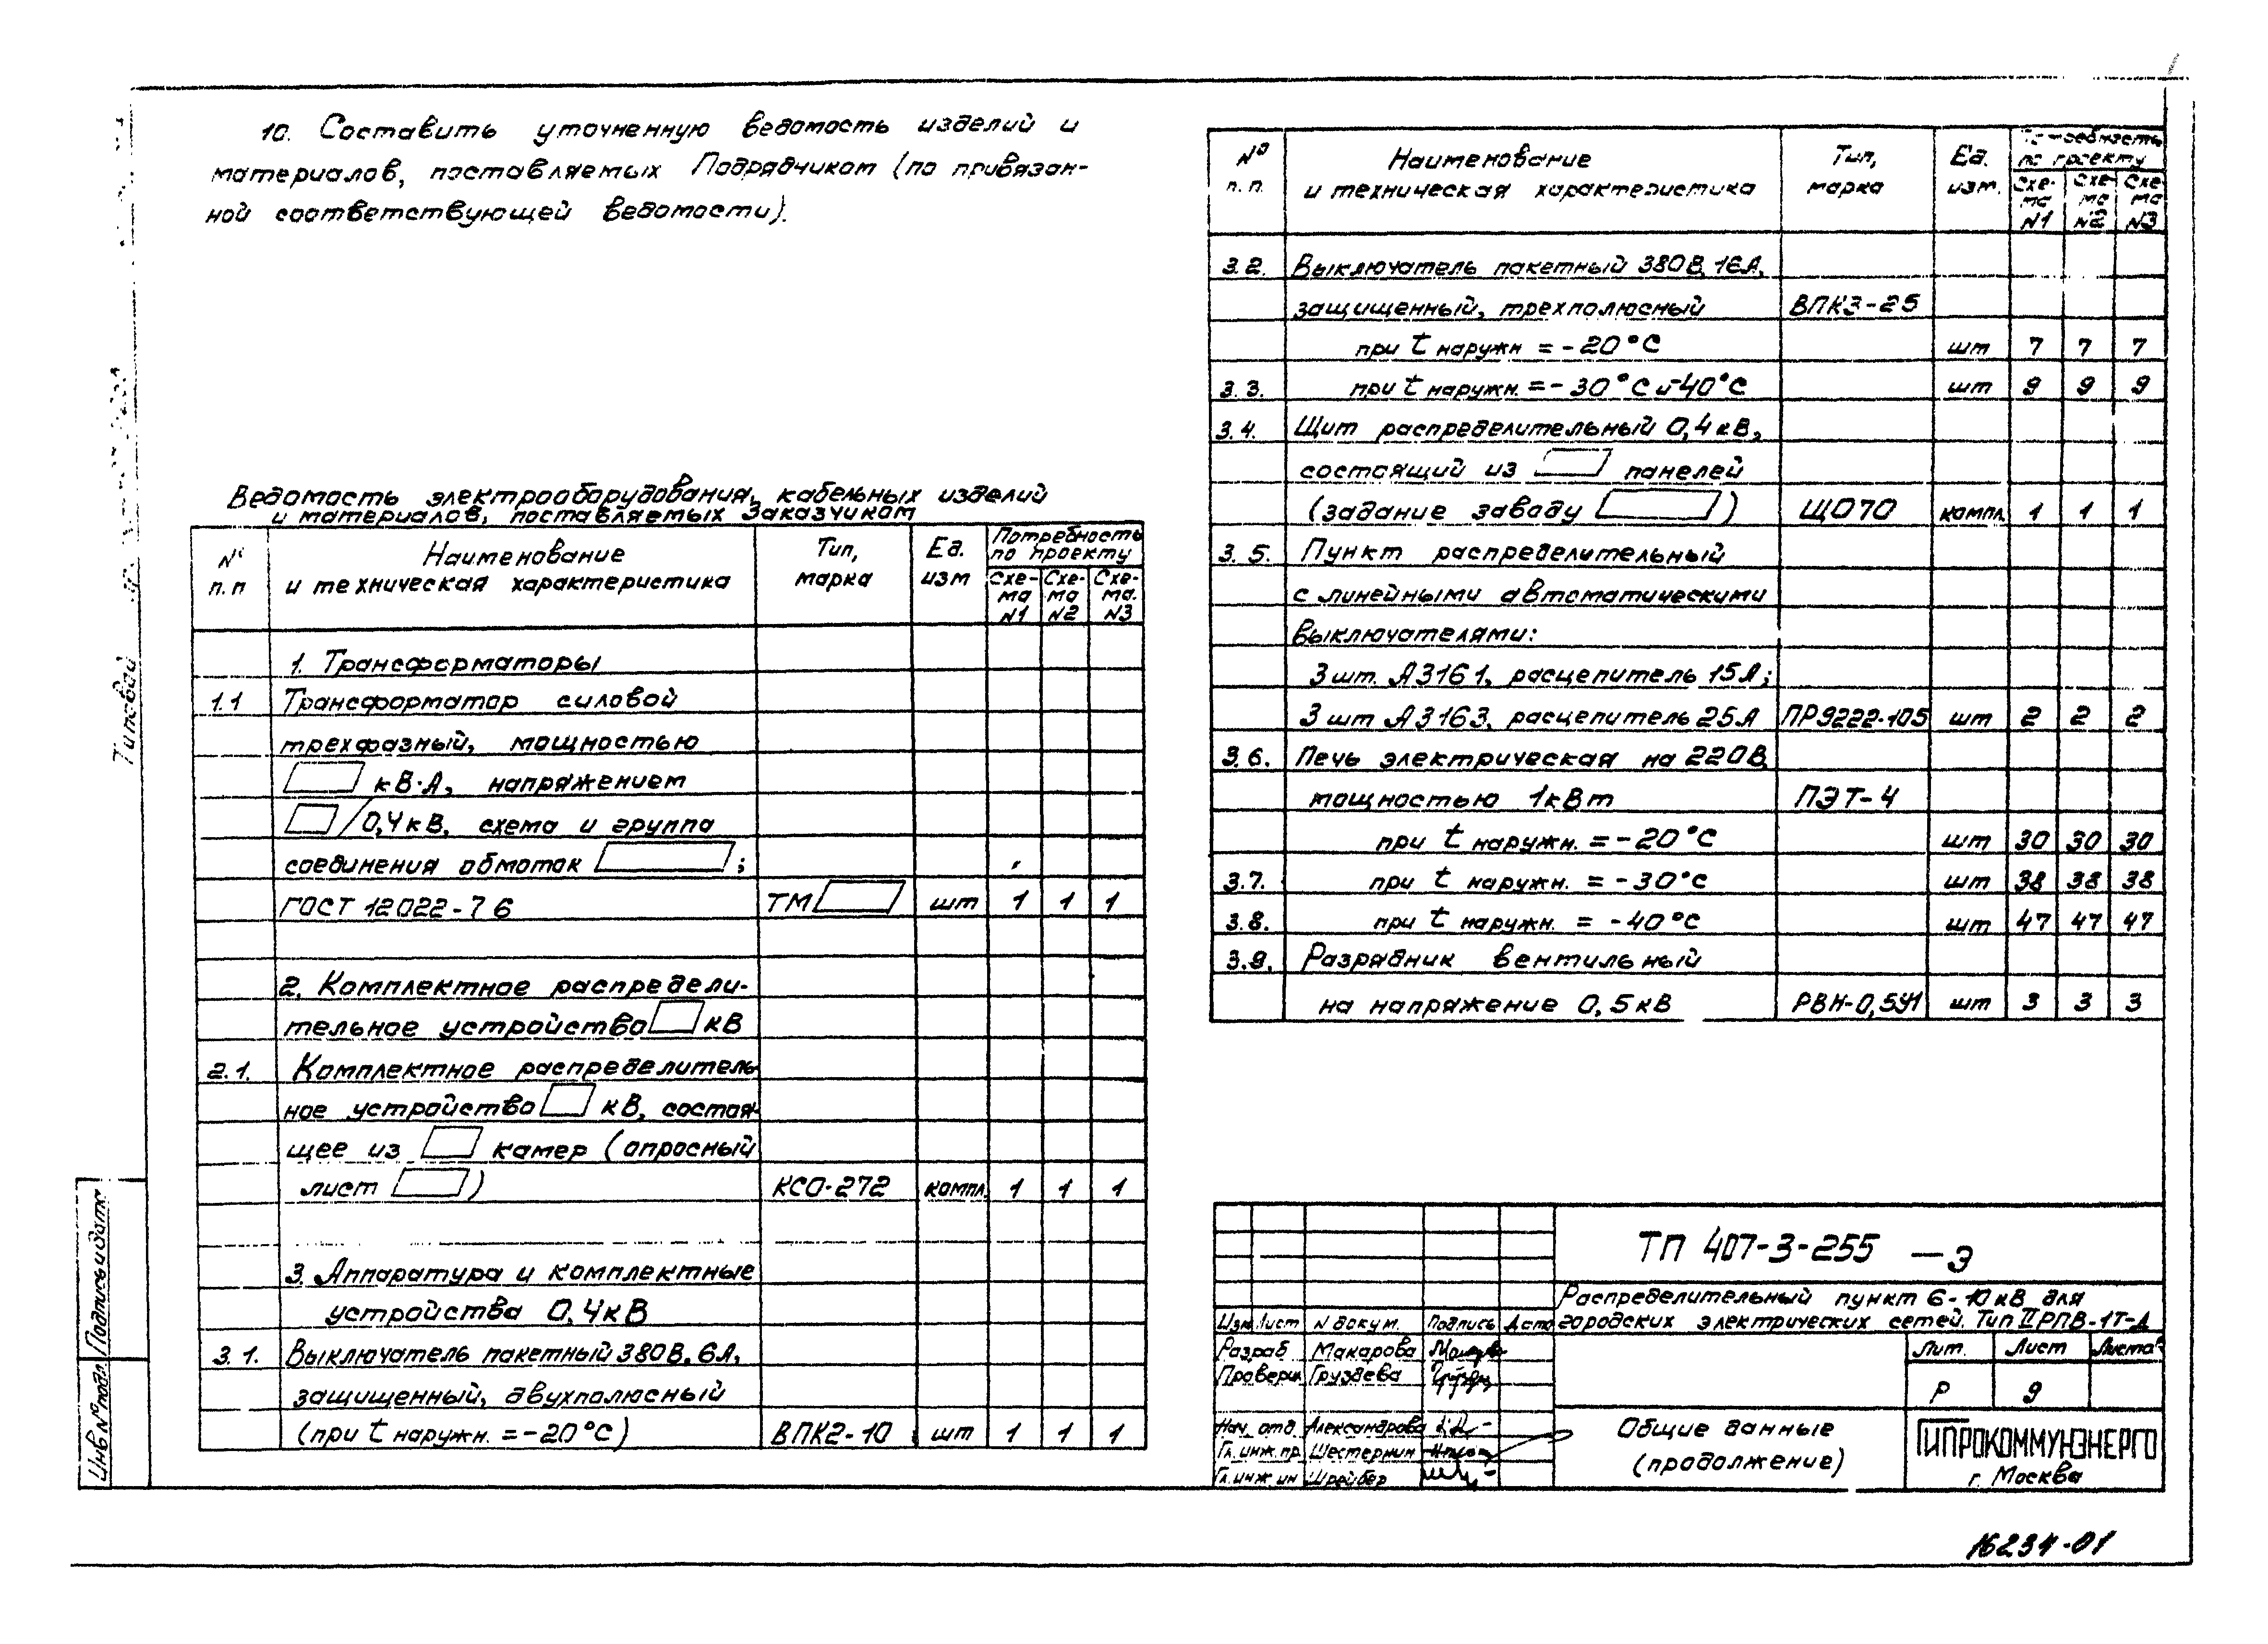 10. Составить уточненную ведомость изделий и
материалов, поставляемых Подрядчиком (по привязан-
ной соответствующей ведомости).
Ведомость электрооборудования, кабельных изделий
и материалов, поставляемых Заказчиком
№ п.п Наименование и техническая характеристика Тип, марка Ед. изм Потребность по проекту Схе-ма N1 Схе-ма N2 Схе-ма. N3
1. Трансформаторы
1.1 Трансформатор силовой
трехфазный, мощностью
кВ·А, напряжением
/0,4кВ, схема и группа
соединения обмоток ;
ГОСТ 12022-76 ТМ шт 1 1 1
2. Комплектное распредели-
тельное устройство кВ
2.1. Комплектное распределитель-
ное устройство кВ, состоя-
щее из камер (опросный
лист ) КСО-272 компл. 1 1 1
3. Аппаратура и комплектные
устройства 0,4кВ
3.1. Выключатель пакетный 380В, 6А,
защищенный, двухполюсный
(при t наружн. = -20°С) ВПК2-10 шт 1 1 1
№ п.п. Наименование и техническая характеристика Тип, марка Ед. изм. Потребность по проекту Схе-ма N1 Схе-ма N2 Схе-ма N3
3.2. Выключатель пакетный 380В, 16А,
защищенный, трехполюсный ВПК3-25
при t наружн = -20°С шт 7 7 7
3.3. при t наружн. = -30°С и -40°С шт 9 9 9
3.4. Щит распределительный 0,4кВ,
состоящий из панелей
(задание заводу ) ЩО70 компл. 1 1 1
3.5. Пункт распределительный
с линейными автоматическими
выключателями:
3 шт. А3161, расцепитель 15А;
3 шт А3163, расцепитель 25А ПР9222-105 шт 2 2 2
3.6. Печь электрическая на 220В,
мощностью 1кВт ПЭТ-4
при t наружн. = -20°С шт 30 30 30
3.7. при t наружн. = -30°С шт 38 38 38
3.8. при t наружн. = -40°С шт 47 47 47
3.9. Разрядник вентильный
на напряжение 0,5кВ РВН-0,5У1 шт 3 3 3
ТП 407-3-255 -Э
Распределительный пункт 6-10кВ для
городских электрических сетей. Тип II РПВ-1Т-А
Изм. Лист N докум. Подпись Дата
Разраб Макарова
Проверил Груздева
Нач. отд Александрова
Гл. инж. пр. Шестернин
Гл. инж. ин Шрейбер
Лит. Лист Листов
Р 9
Общие данные
(продолжение)
ГИПРОКОММУНЭНЕРГО
г. Москва
16234-01
Типовой
Подпись и дата
Инв № подл.